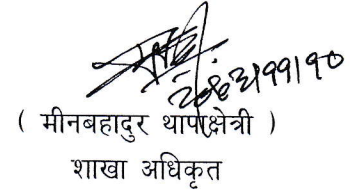 २०८२।११।१०
( मीनबहादुर थापाक्षेत्री )
शाखा अधिकृत